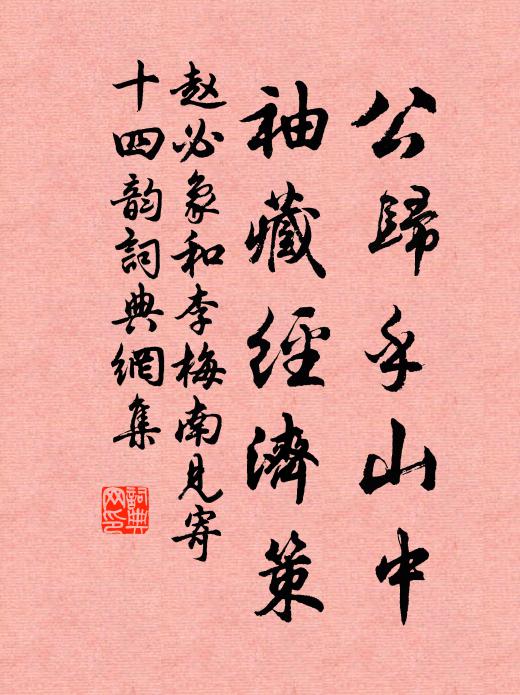 公歸乎山中
袖藏經濟策
赵必象和李梅南見寄
十四韵詞典網集
詞典
网印